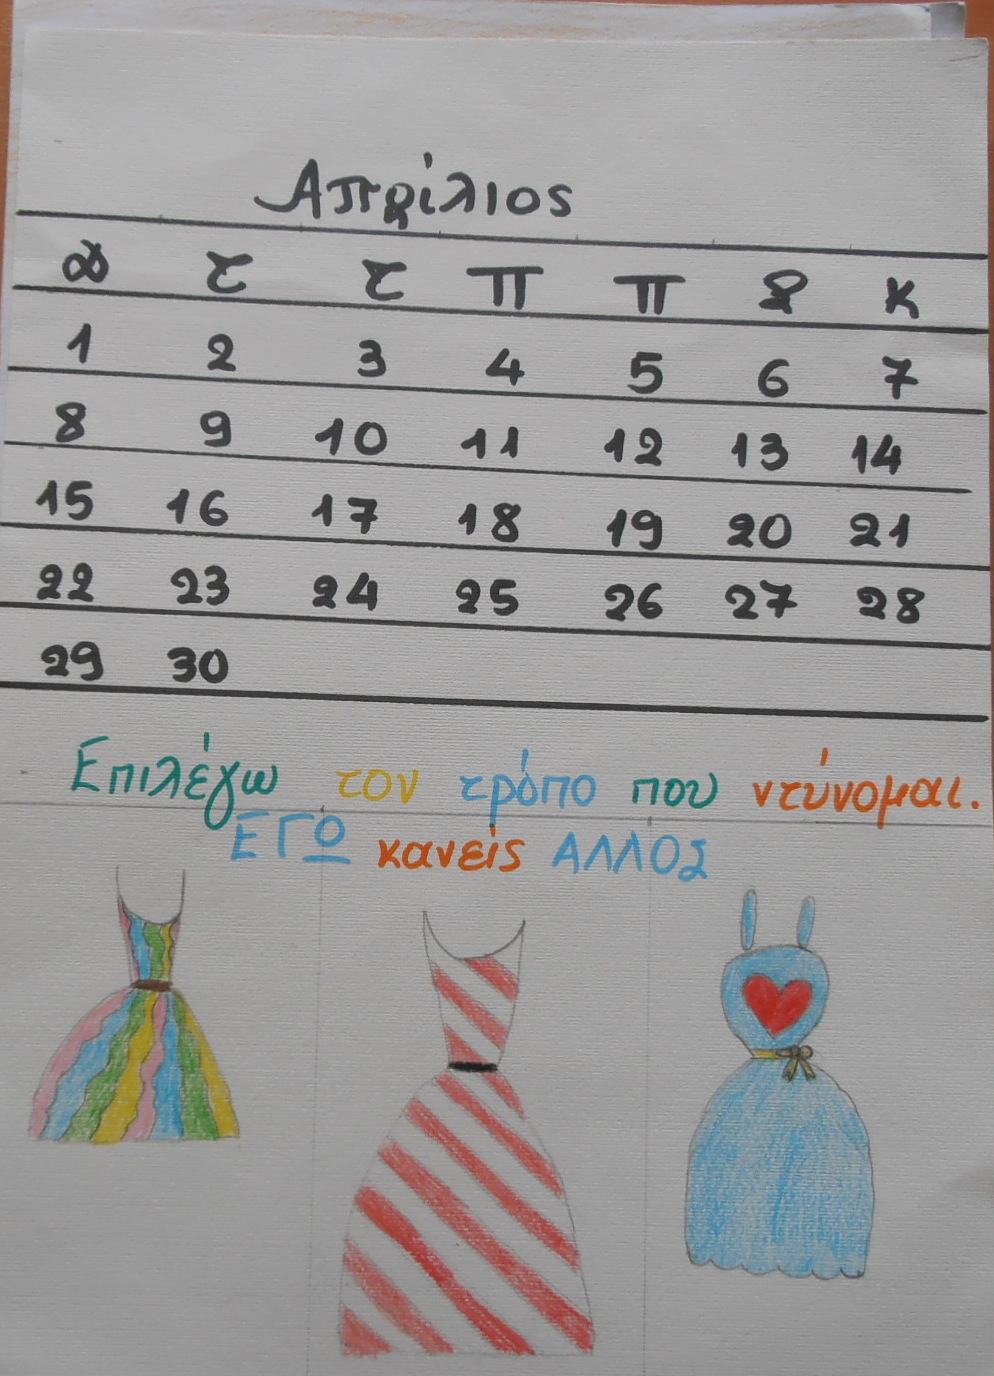 Απρίλιος
Δ Τ Τ Π Π Σ Κ
1 2 3 4 5 6 7
8 9 10 11 12 13 14
15 16 17 18 19 20 21
22 23 24 25 26 27 28
29 30
Επιλέγω τον τρόπο που ντύνομαι.
ΕΓΩ κανείς ΑΛΛΟΣ